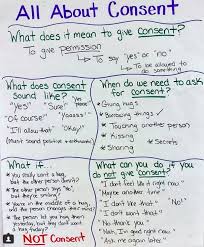 All About Consent
What does it mean to give consent?
To give permission
→ To say "yes" or "no"
→ To be allowed to
do something
What does consent
sound like?
"Yes" "Sure" "Yeah"
"Of course" "Yaaass"
"I'll allow that" "Okay!"
(Must sound positive + enthusiastic)
When do we need to ask
for consent?
* Giving hugs
* Borrowing things
* Touching another person
* Kissing
* Sharing * Secrets
What if...
You really want a hug,
but the other person doesn't?
The other person says "no",
but they're smiling?
You're in the middle of a hug,
and the person changes their mind?
The person let you hug them
yesterday, but they don't want
a hug today?
NOT Consent
What can you do if you
do not give consent?
"I don't feel like it right now."
"Maybe another time"
"I don't like that"
"I don't want that."
"No thank you."
"Nah, I'm good right now."
"Ask me again later."